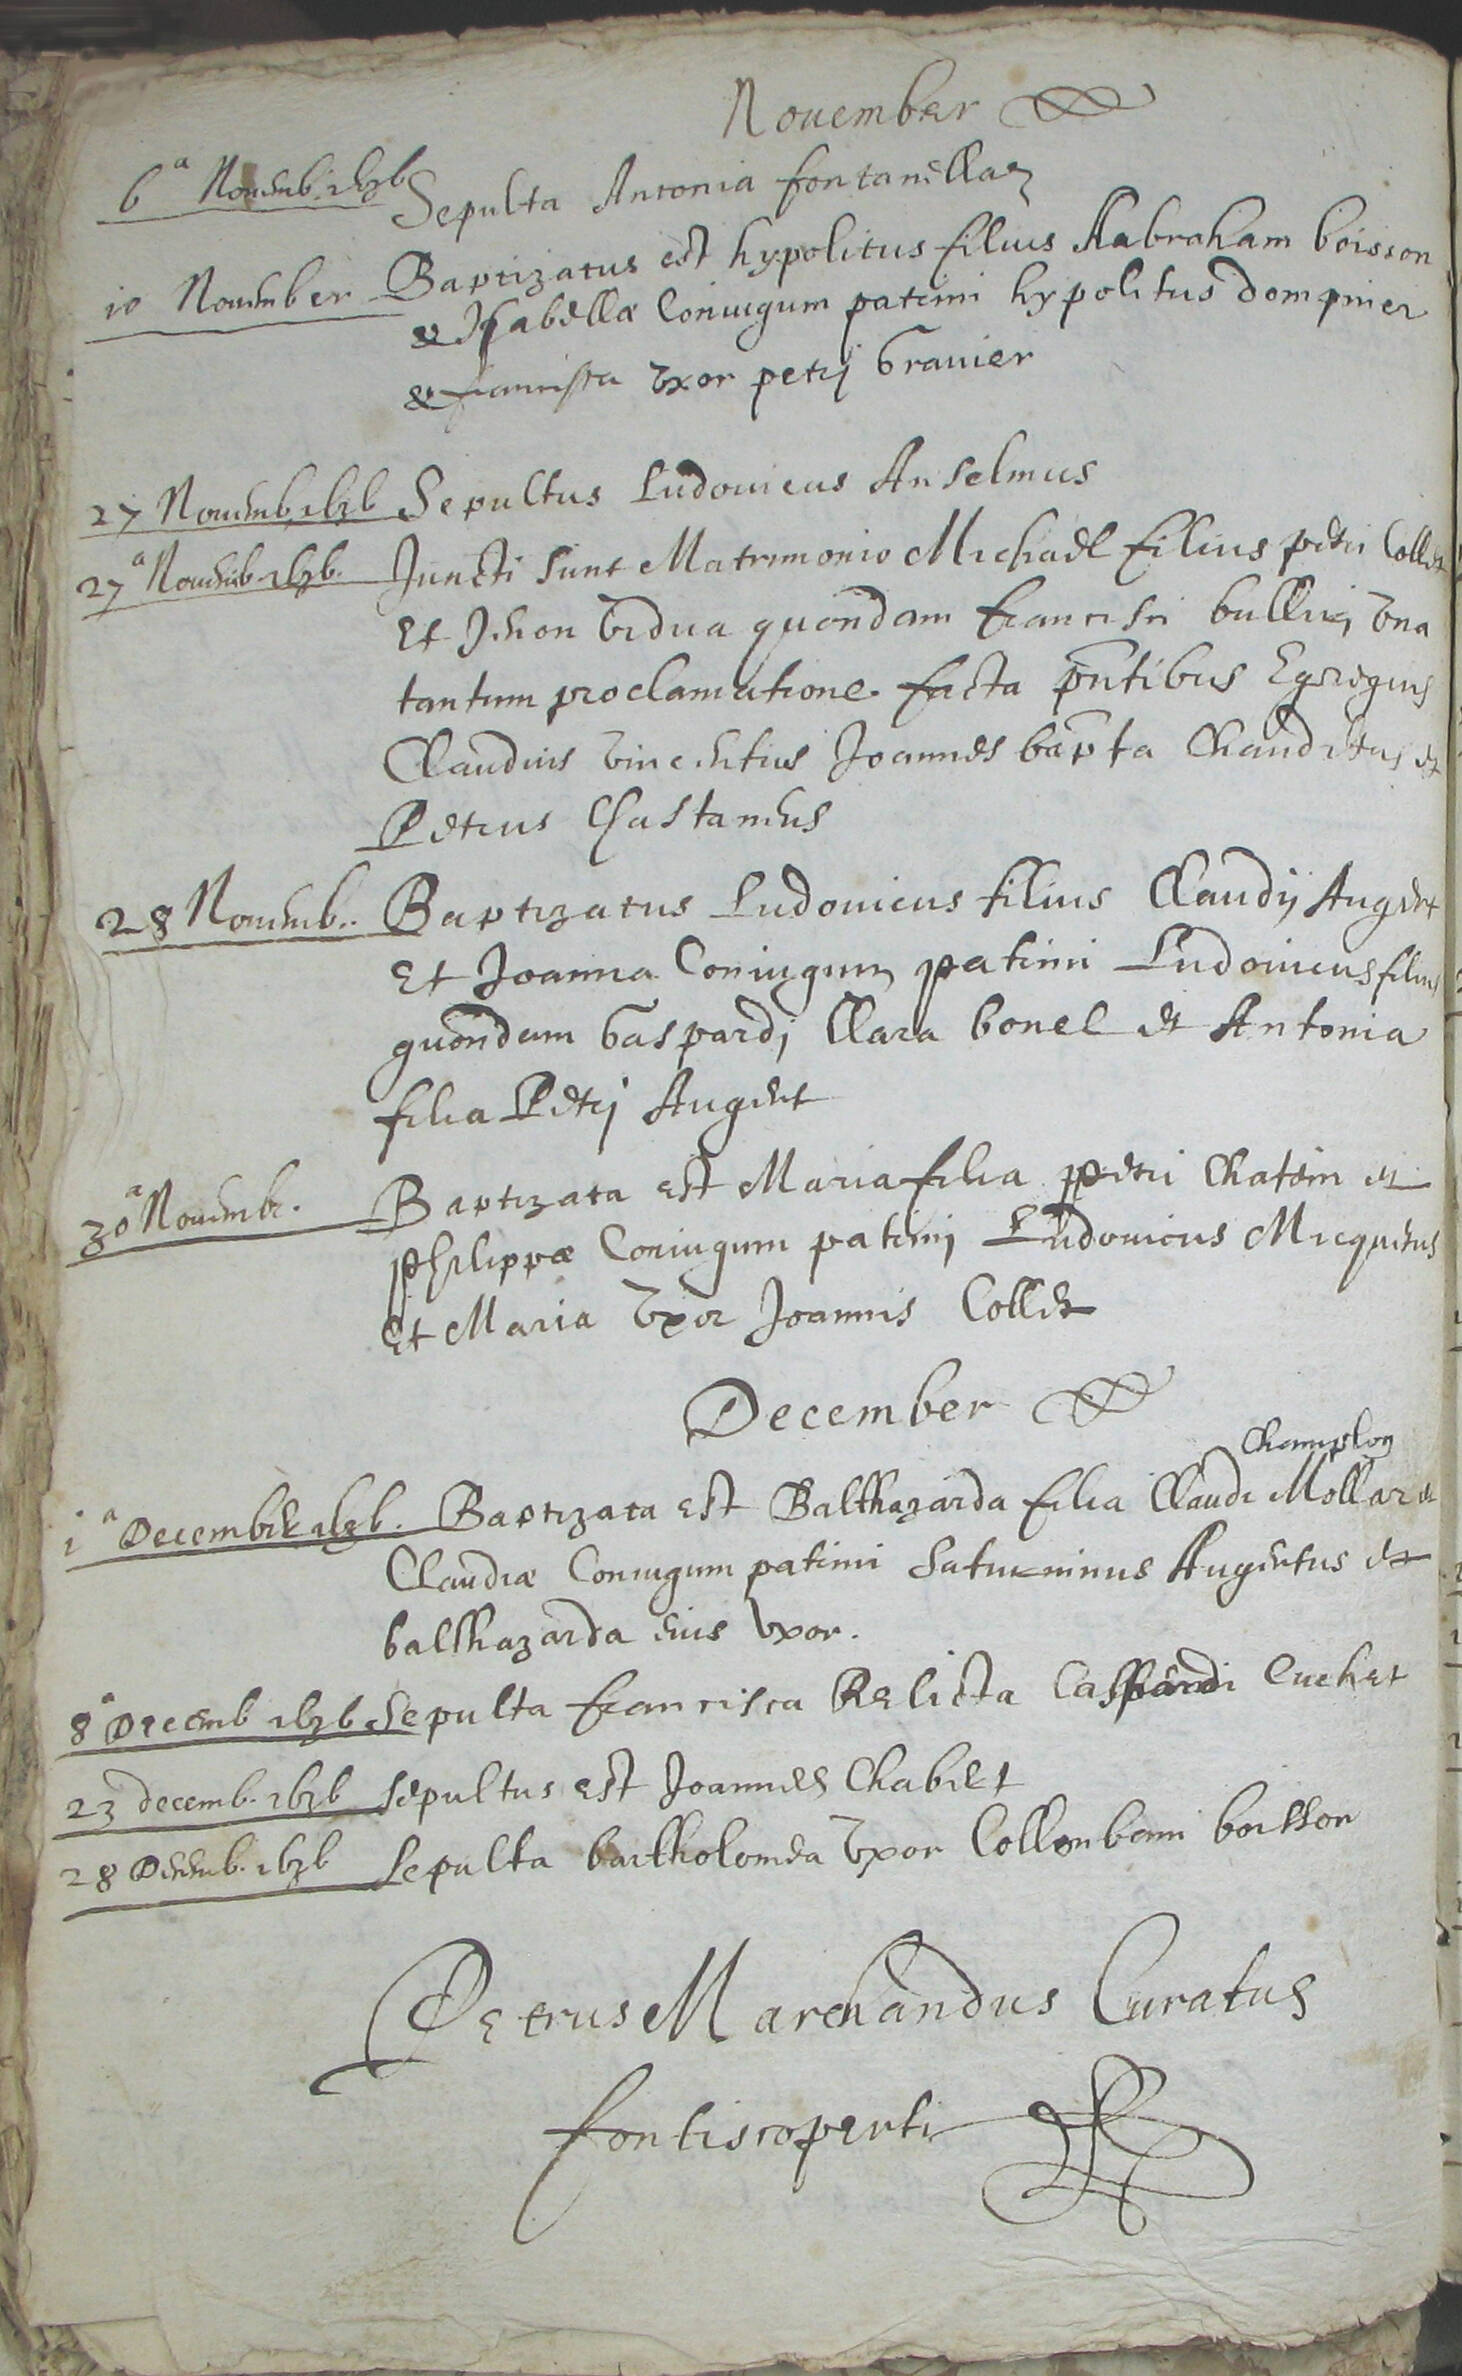 Nouember
6ª Nouemb. 1636 Sepulta Antonia fontanellaz
10 Nouember Baptizatus est hypolitus filius Habraham boisson
& Isabellæ Coniugum patrini hypolitus dompnier
& francisca vxor petrj Grauier
27 Nouemb 1636 Sepultus Ludouicus Anselmus
27ª Nouemb 1636. Juncti sunt Matrimonio Michael filius petri Collet
Et vidua quondam francisci bullie, vna
tantum proclamatione facta pntibus Egregius
Claudius vincentius Joannes bapta Chaudetus et
Petrus Chastaneus
28 Nouemb. Baptizatus Ludouicus filius Claudij Augert
Et Joanna Coniugum patrini Ludouicus filius
quondam Gaspardj Clara bonel et Antonia
filia Petrj Augert
30ª Nouemb. Baptizata est Maria filia petri Chatein et
Philippæ Coniugum patrinj Ludouicus Micquetus
Et Maria vxor Joannis Collet
December
Champlon
1ª Decembris 1636. Baptizata est Balthazarda filia Claudi Mollar et
Claudiæ Coniugum patrini Saturninus Augertus et
balthazarda eius vxor.
8ª Decemb 1636 Sepulta francisca Relicta Caspardi Cuchet
23 decemb. 1636 Sepultus est Joannes Chabert
28 Decemb. 1636 Sepulta bartholomea vxor Collombani boisson
Petrus Marchandus Curatus
fontiscoperti